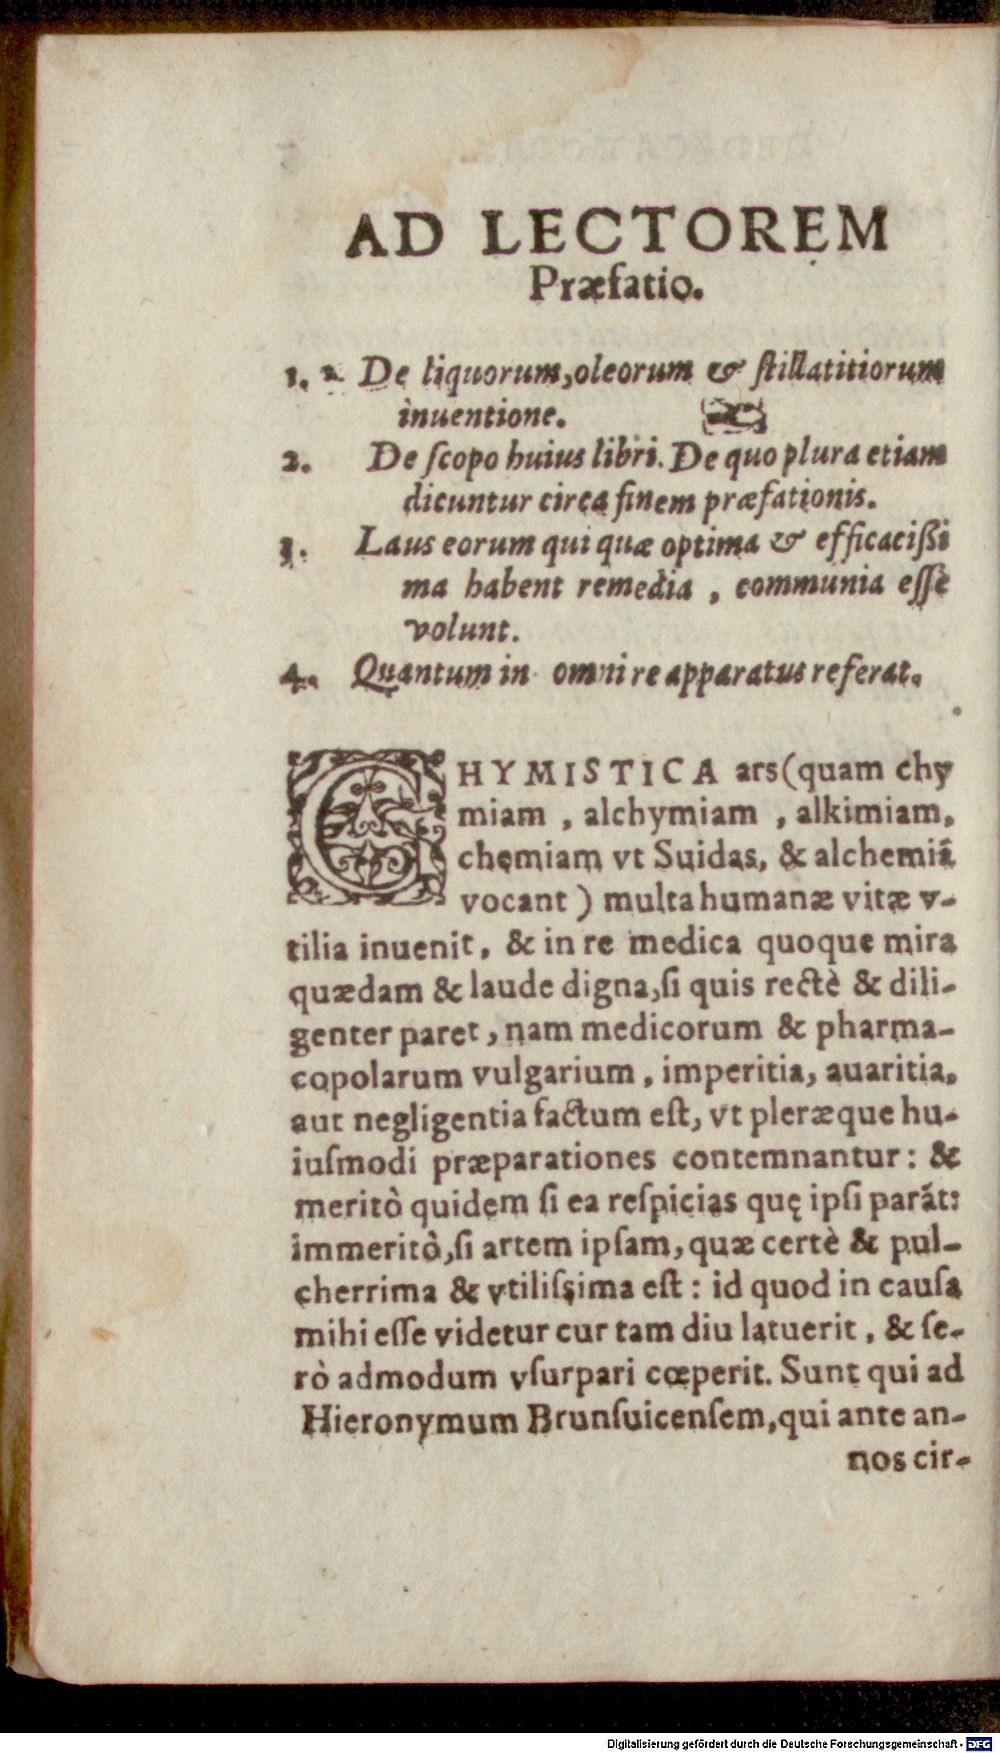 AD LECTOREM
Præfatio.
1. 2 De liquorum, oleorum & ſtillatitiorum
inuentione.
2. De ſcopo huius libri. De quo plura etiam
dicuntur circa finem præfationis.
3. Laus eorum qui quæ optima & efficaciſſi
ma habent remedia , communia eſſe
volunt.
4. Quantum in omni re apparatus referat.
CHYMISTICA ars (quam chy
miam , alchymiam , alkimiam,
chemiam vt Suidas, & alchemiã
vocant ) multa humanæ vitæ v-
tilia inuenit, & in re medica quoque mira
quædam & laude digna, ſi quis rectè & dili-
genter paret, nam medicorum & pharma-
copolarum vulgarium, imperitia, auaritia,
aut negligentia factum eſt, vt pleræque hu-
iuſmodi præparationes contemnantur: &
meritò quidem ſi ea reſpicias quę ipſi parãt:
immeritò, ſi artem ipſam, quæ certè & pul-
cherrima & vtiliſsima eſt: id quod in cauſa
mihi eſſe videtur cur tam diu latuerit, & ſe-
rò admodum vſurpari cœperit. Sunt qui ad
Hieronymum Brunſuicenſem, qui ante an-
nos cir-
Digitalisierung gefördert durch die Deutsche Forschungsgemeinschaft - DFG